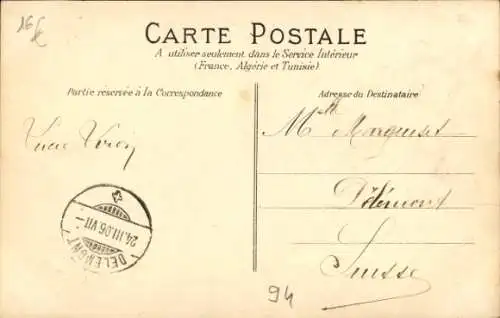 16
CARTE POSTALE
A utiliser seulement dans le Service Intérieur
(France, Algérie et Tunisie)
Partie réservée à la Correspondance
Adresse du Destinataire
Mlle
Délémont
Suisse
DELÉMONT
24.III.06.VII
94